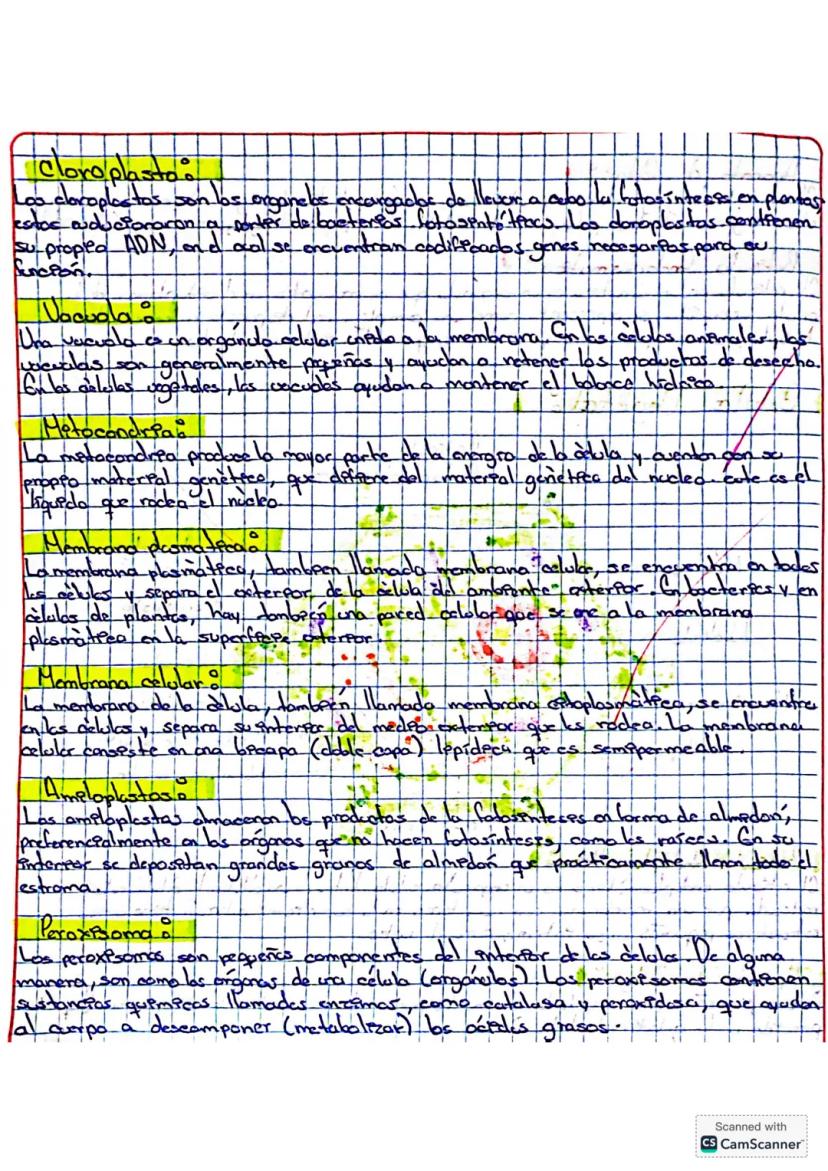 Cloroplasto:
Los cloroplastos son los organelos encargados de llevar a cabo la fotosíntesis en plantas,
estos evolucionaron a partir de bacterias fotosintéticas. Los cloroplastos contienen
su propio ADN, en el cual se encuentran codificados genes necesarios para su
función.
Vacuola:
Una vacuola es un orgánulo celular unido a la membrana. En las células animales, las
vacuolas son generalmente pequeñas y ayudan a retener los productos de desecho.
En las células vegetales, las vacuolas ayudan a mantener el balance hídrico.
Mitocondria:
La mitocondria produce la mayor parte de la energía de la célula y cuentan con su
propio material genético, que difiere del material genético del nucleo. este es el
líquido que rodea el núcleo.
Membrana plasmática:
La membrana plasmática, tambien llamada membrana celular, se encuentra en todas
las células y separa el exterior de la célula del ambiente exterior. En bacterias y en
células de plantas, hay también una pared celular que se une a la membrana
plasmática en la superficie exterior.
Membrana celular:
La membrana de la célula, también llamada membrana citoplasmática, se encuentra
en las células y separa su interior del medio exterior que les rodea. La membrana
celular consiste en una bicapa (doble capa) lipídica que es semipermeable.
Amiloplastos:
Los amiloplastos almacenan los productos de la fotosíntesis en forma de almidón,
preferencialmente en los órganos que no hacen fotosíntesis, como las raíces. En su
interior se depositan grandes granos de almidón que prácticamente llenan todo el
estroma.
Peroxisoma:
Los peroxisomas son pequeños componentes del interior de las células. De alguna
manera, son como los órganos de una célula (orgánulos) Los peroxisomas contienen
sustancias químicas llamadas enzimas, como catalasa y peroxidasa, que ayudan
al cuerpo a descomponer (metabolizar) los ácidos grasos.
Scanned with
CS CamScanner